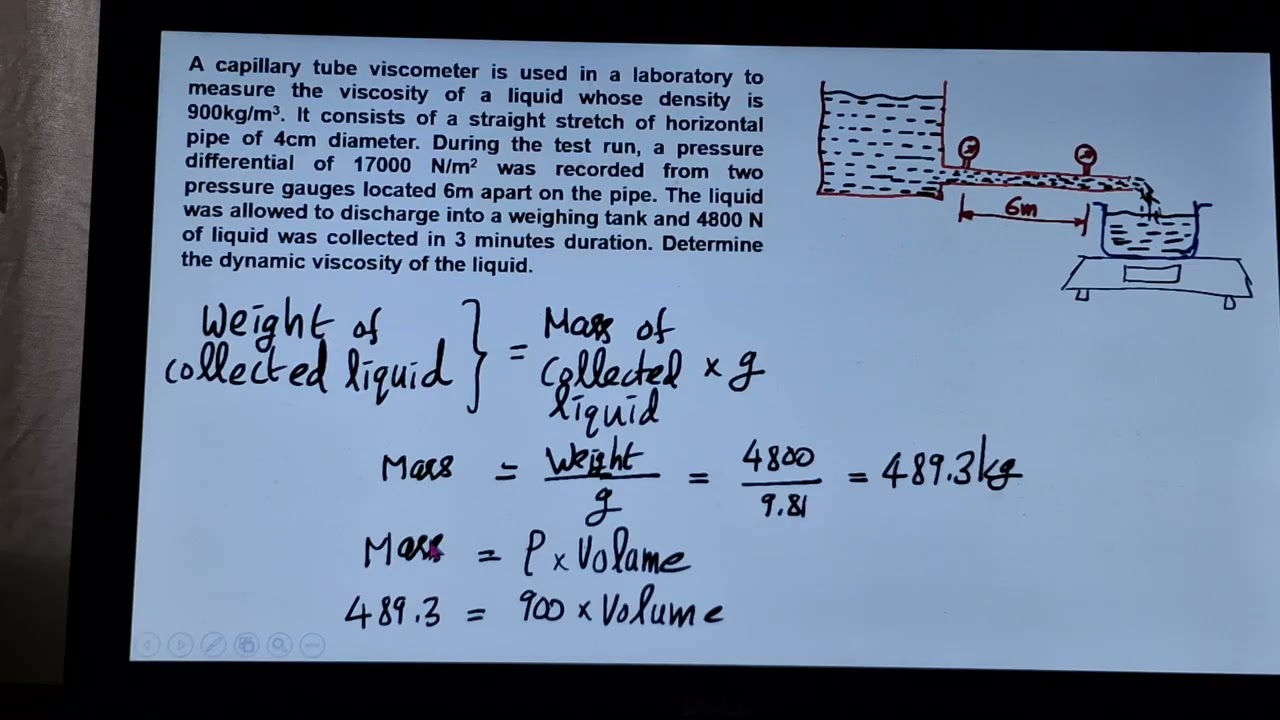 A capillary tube viscometer is used in a laboratory to
measure the viscosity of a liquid whose density is
900kg/m³. It consists of a straight stretch of horizontal
pipe of 4cm diameter. During the test run, a pressure
differential of 17000 N/m² was recorded from two
pressure gauges located 6m apart on the pipe. The liquid
was allowed to discharge into a weighing tank and 4800 N
of liquid was collected in 3 minutes duration. Determine
the dynamic viscosity of the liquid.
6m
Weight of
collected liquid } = Mass of collected liquid × g
Mass = Weight / g = 4800 / 9.81 = 489.3kg
Mass = ρ × Volume
489.3 = 900 × Volume